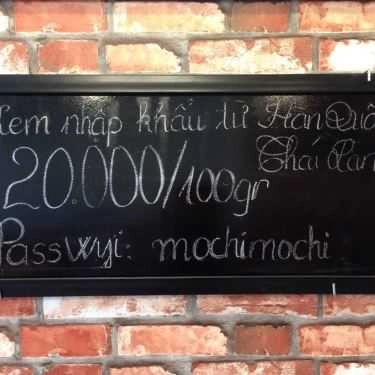 Kem nhập khẩu từ Hàn Quốc
Thái Lan
20.000/100gr
Passwyi: mochimochi